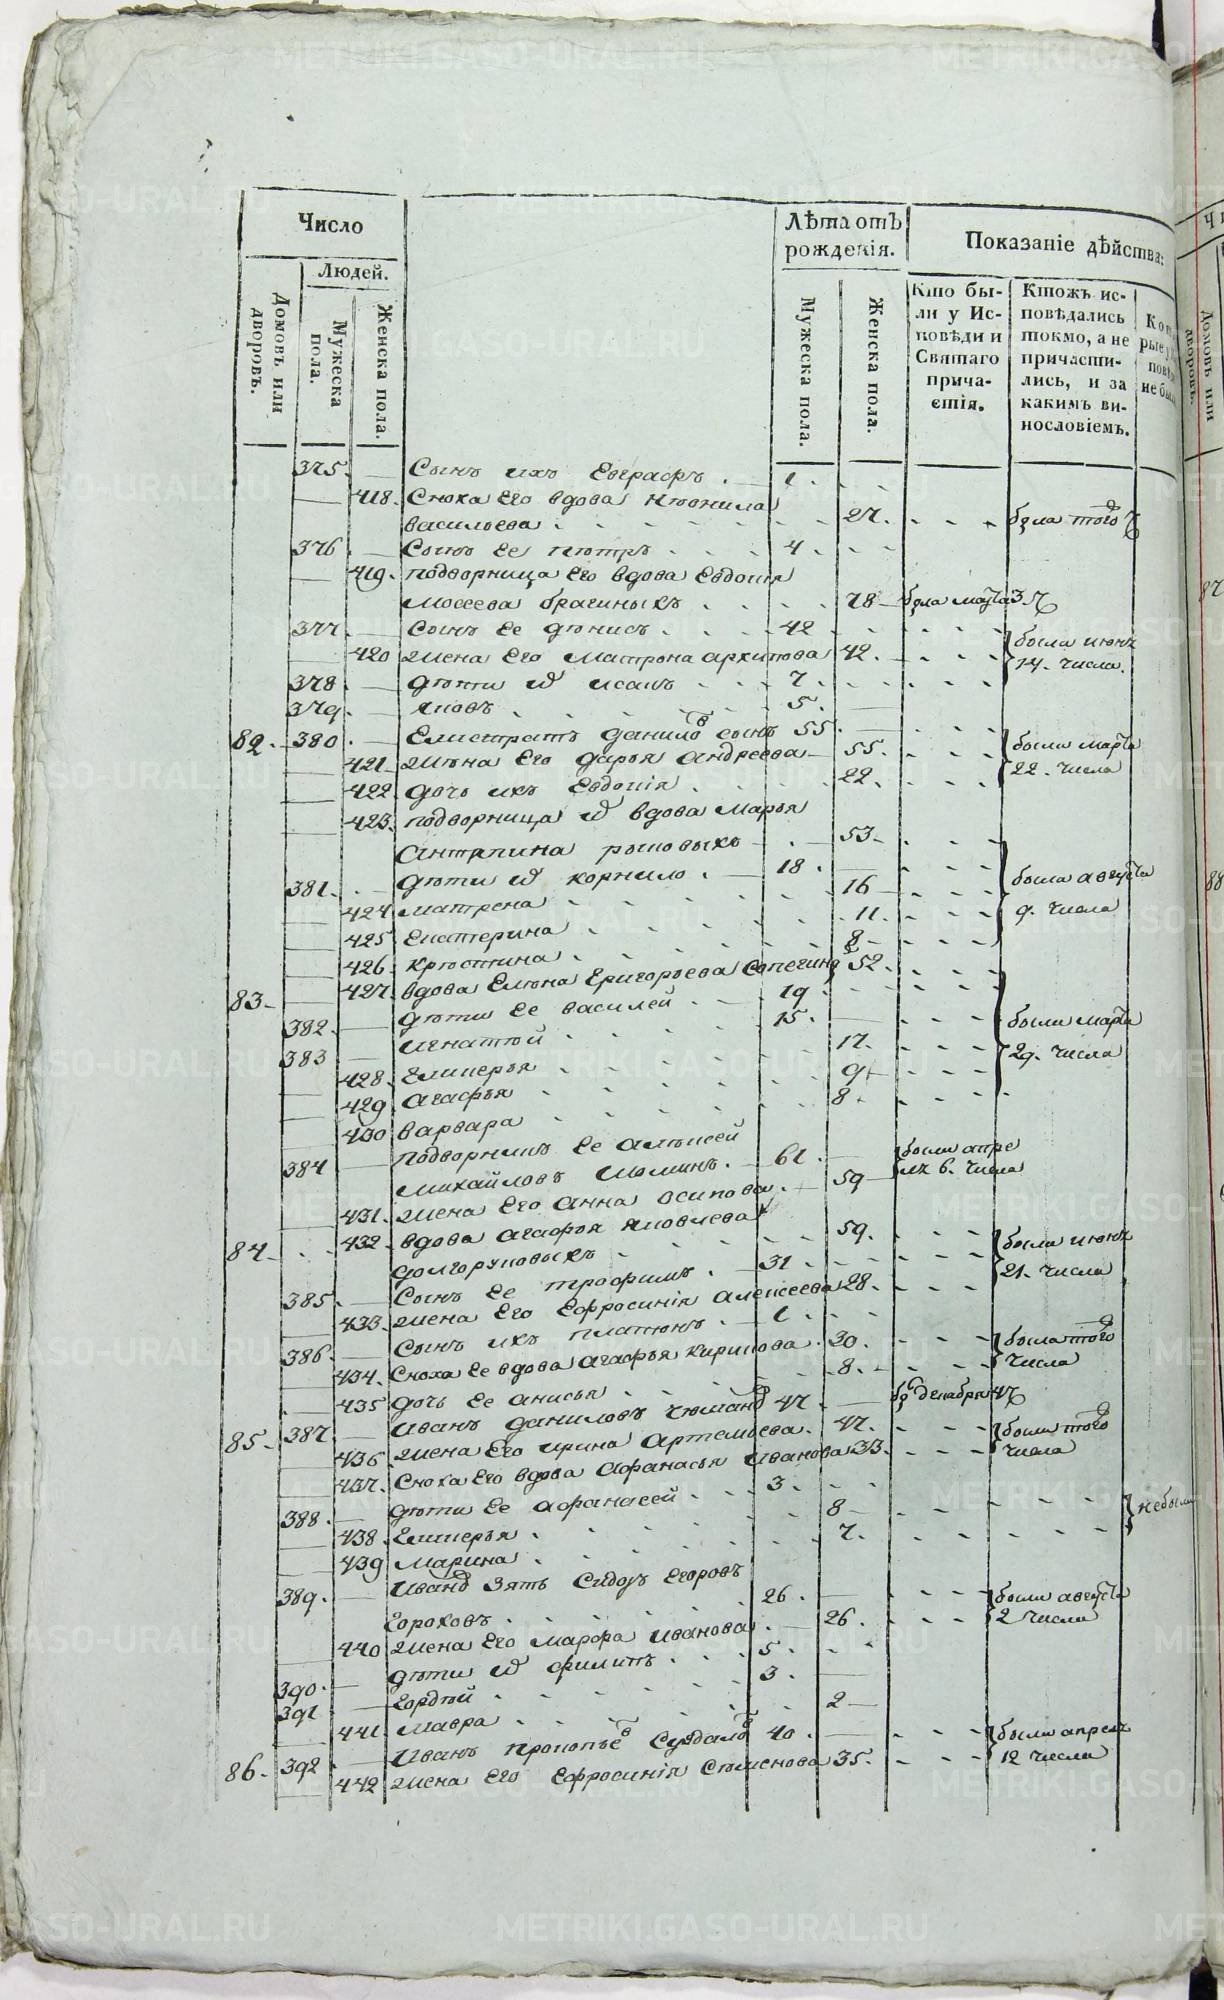 Число
Лѣта отъ рожденія.
Показаніе дѣйства:
Людей.
Домовъ или дворовъ.
Мужеска пола.
Женска пола.
Мужеска пола.
Женска пола.
Кто были у Исповѣди и Святаго причастія.
Ктожъ исповѣдались токмо, а не причастились, и за какимъ винословіемъ.
375. Сынъ ихъ Евграфъ 1.
418. Сноха Его вдова Неонила
васильева 27. была того
376. Сынъ Ее петръ 4.
419. подворница Его вдова Евдокія
Мосеева брагиныхъ 78 была марта 3
377. Сынъ Ее денисъ 42
420 Жена Его Матрона архипова 42. были июня
378. дети их исакъ 7. 14. числа.
379. яковъ 5.
82. 380. Елистратъ данилов сынъ 55
421. Жена Его дарья андреева 55. были марта
422. дочь ихъ Евдокія 22. 22. числа
423. подворница их вдова Марья
Антипина рыковыхъ 53.
381. дети ея корнило 18. была августа
424. матрена 16 9. числа
425 Екатерина 11.
426. крестина 8
83. 427. вдова Елена Григорьева Сапегина 52.
382. дети Ее василей 19. были марта
383 игнатей 15. 29. числа
428. Гликерья 17.
429 агафья 9
430 варвара 8.
384 подворникъ Ее алексей
михайловъ Мюминъ. 61. были апре
431. Жена Его анна осипова 59 ля 6. числа
84. 432. вдова агафья яковлева
долгоруковыхъ 59. были июня
385. Сынъ Ее трофимъ. 31 21. числа
433. Жена Его Ефросинія алексеева 28.
386. Сынъ ихъ платонъ. 1
434. Сноха Ее вдова агафья кирилова 30. была того
435 дочь Ее анисья 8. числа
85. 387. иванъ даниловъ 47. декабря 4
436 Жена Его ирина артемьева. 47. были того
437. Сноха Его вдова афанасья иванова 33. числа
388. дети Ее афанасей 3. небыли
438. Гликерья 8
439 Марина 7.
389. Ивана зять Сидор Егоровъ
Гороховъ 26. были августа
440 Жена Его марфа иванова 26. 2 числа
390. дети их филипъ 5.
391 гордей 3.
441. Мавра 2
86. 392. Иванъ прокопьев Суздалов 40. были апреля
442 Жена Его Ефросинія Семенова 35. 12 числа
METRIKI.GASO-URAL.RU